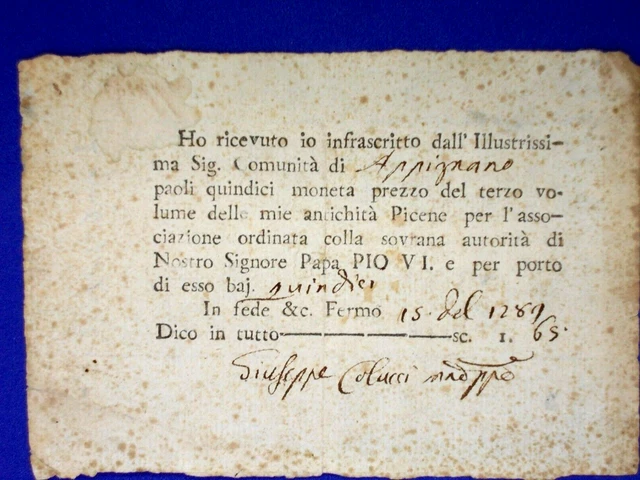 Ho ricevuto io infrascritto dall'Illustrissi-
ma Sig. Comunità di Appignano
paoli quindici moneta prezzo del terzo vo-
lume delle mie antichità Picene per l'asso-
ciazione ordinata colla sovrana autorità di
Nostro Signore Papa PIO VI. e per porto
di esso baj. quindici
In fede &c. Fermo 15. del 1789
Dico in tutto——————sc. 1. 65.
Giuseppe Colucci